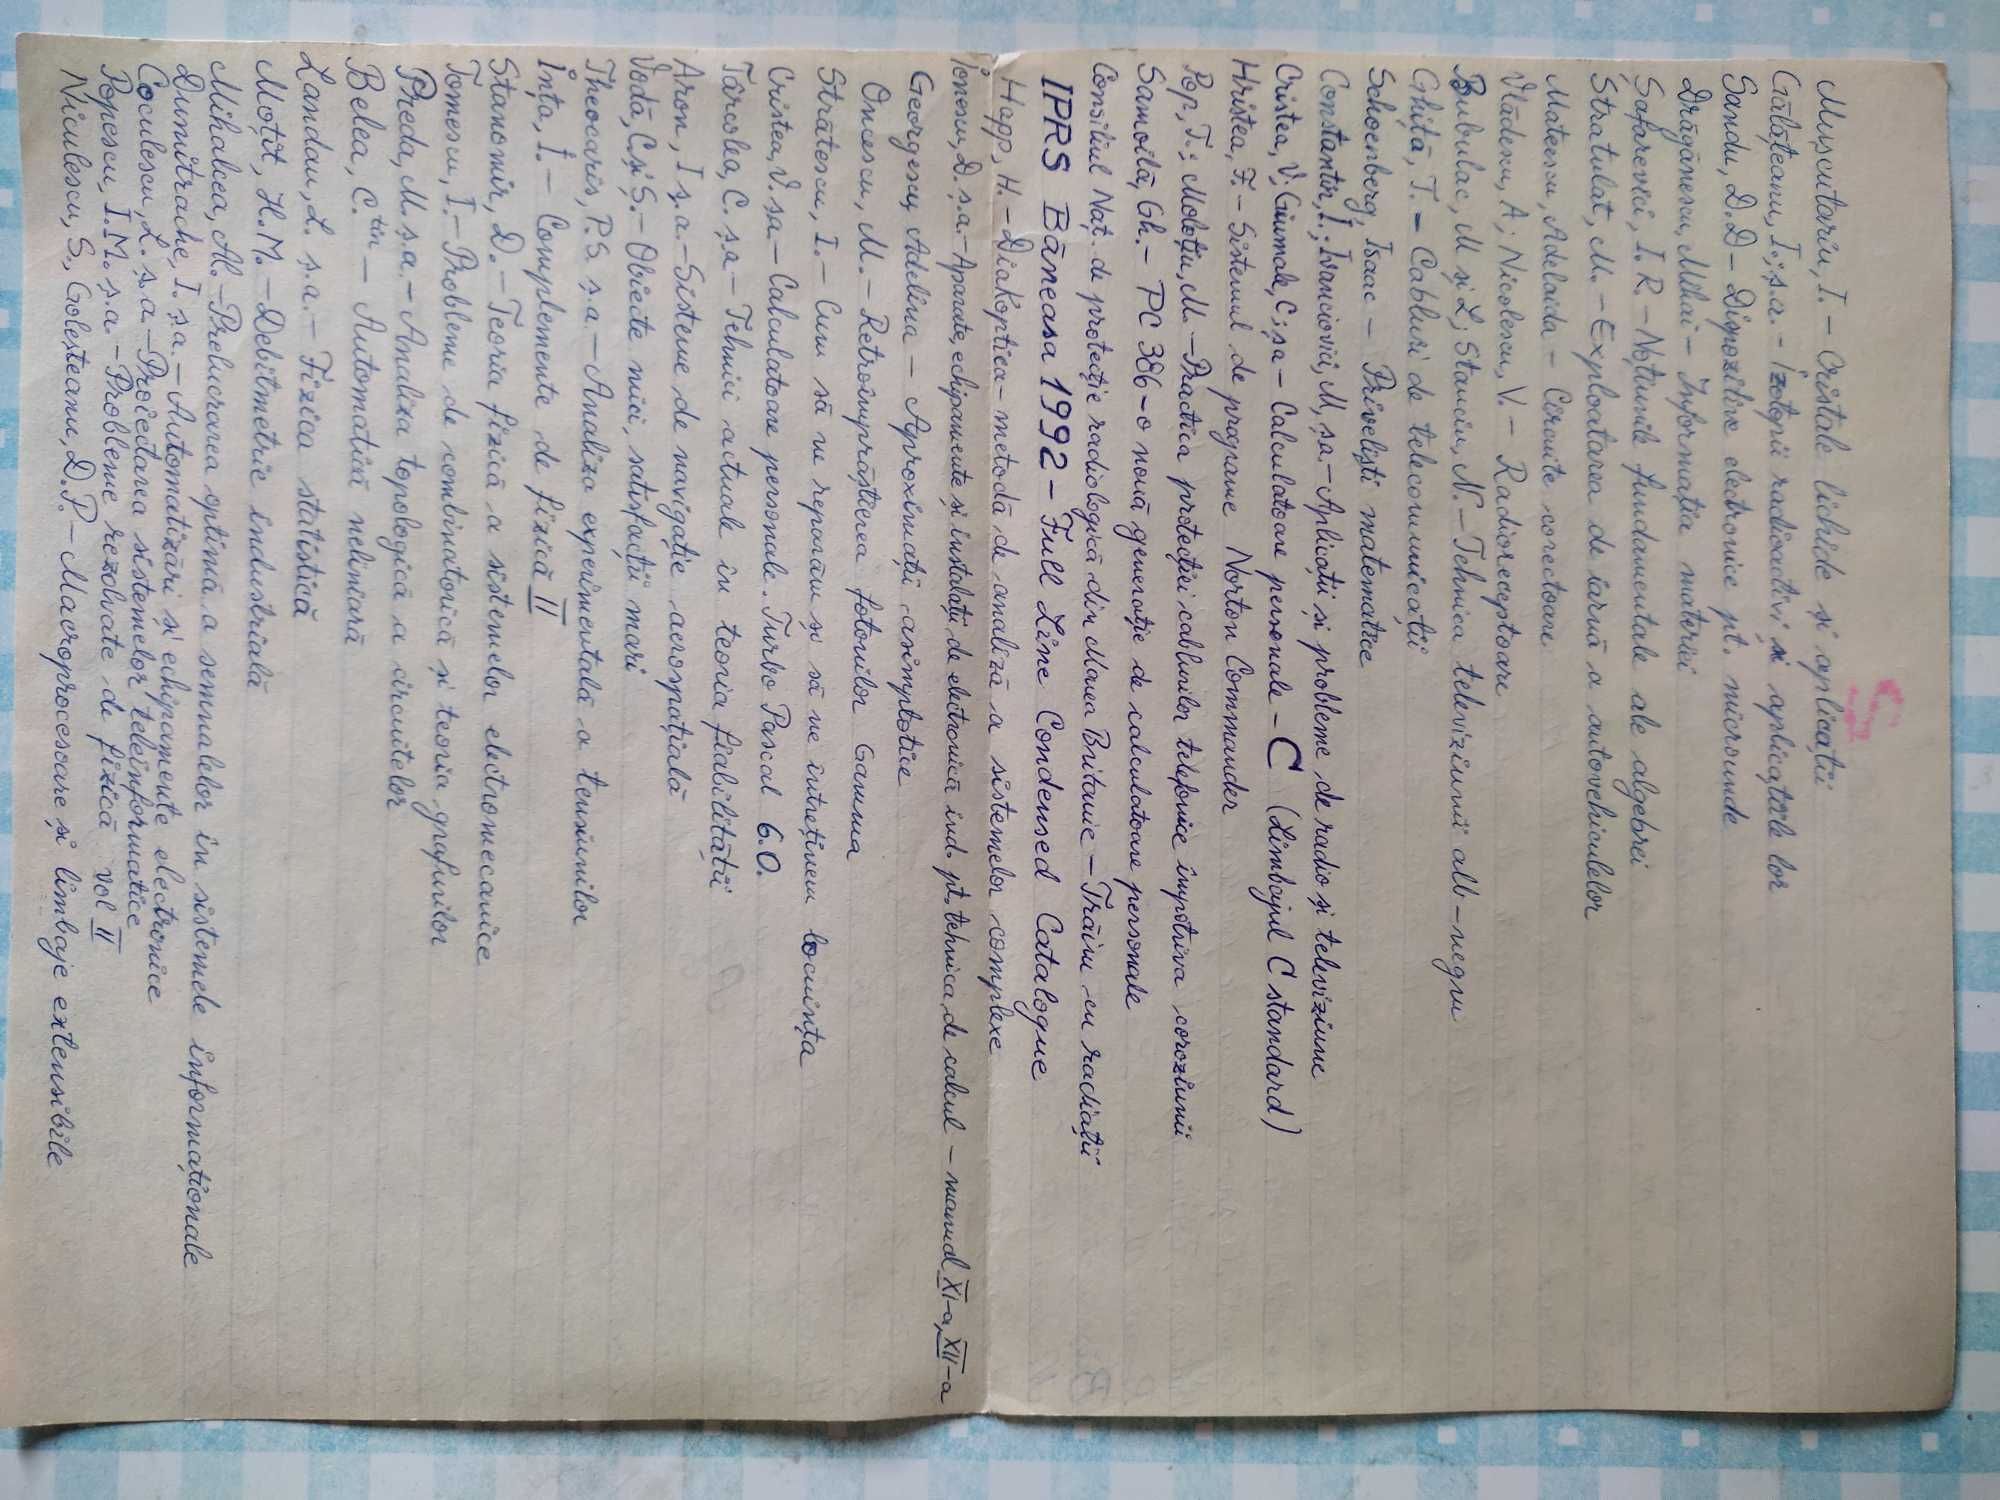 S
Mușcutariu, I. – Cristale lichide și aplicații
Gălățeanu, I.; ș.a. – Izotopii radioactivi și aplicațiile lor
Sandu, D.D – Dispozitive electronice pt. microunde
Drăgănescu, Mihai – Informația materiei
Șafarevici, I.R. – Noțiunile fundamentale ale algebrei
Stratulat, M. – Exploatarea de iarnă a autovehiculelor
Mateescu, Adelaida – Circuite corectoare
Vlădescu, A; Nicolescu, V. – Radioreceptoare
Bulbulac, M și L; Stanciu, N. – Tehnica televiziunii alb–negru
Ghiță, T. – Cabluri de telecomunicații
Schoenberg, Isaac – Priveliști matematice
Constantin, I.; Isvoniciovici, M, ș.a. – Aplicații și probleme de radio și televiziune
Cristea, V; Giumale, C; ș.a – Calculatoare personale – C (Limbajul C standard)
Hristea, F. – Sistemul de programe Norton Commander
Pop, T.; Molotiu, M. – Practica protecției cablurilor telefonice împotriva coroziunii
Samoilă, Gh. – PC 386 – o nouă generație de calculatoare personale
Consiliul Naț. de protecție radiologică din Marea Britanie – Trăim cu radiații
IPRS Băneasa 1992 – Full Line Condensed Catalogue
Happ, H. – Diakoptica – metodă de analiză a sistemelor complexe
Ionescu, D. ș.a. – Aparate, echipamente și instalații de electronică ind. pt. tehnica de calcul – manual XI–a, XII–a
Georgescu Adelina – Aproximații asimptotice
Oncescu, M. – Retroîmprăștierea fotonilor Gamma
Strătescu, I. – Cum să ne reparăm și să ne întreținem locuința
Cristea, V. ș.a. – Calculatoare personale. Turbo Pascal 6.0.
Târcolea, C. ș.a – Tehnici actuale în teoria fiabilității
Aron, I ș.a. – Sisteme de navigație aerospațială
Vodă, C și S. – Obiecte mici, satisfacții mari
Theocaris, P.S ș.a – Analiza experimentală a tensiunilor
Ința, I. – Complemente de fizică II
Stanomir, D. – Teoria fizică a sistemelor electromecanice
Tomescu, I. – Probleme de combinatorică și teoria grafurilor
Preda, M. ș.a. – Analiza topologică a circuitelor
Belea, C.tin – Automatică neliniară
Landau, L. ș.a. – Fizica statistică
Moțit, H.M. – Debitmetrie industrială
Mihalcea, Al. – Prelucrarea optimă a semnalelor în sistemele informaționale
Dumitrache, I. ș.a. – Automatizări și echipamente electronice
Cociulescu, L. ș.a – Proiectarea sistemelor teleinformatice
Popescu, I.M. ș.a. – Probleme rezolvate de fizică vol II
Niculescu, S., Goleșteanu, D.P. – Macroprocesoare și limbaje extensibile